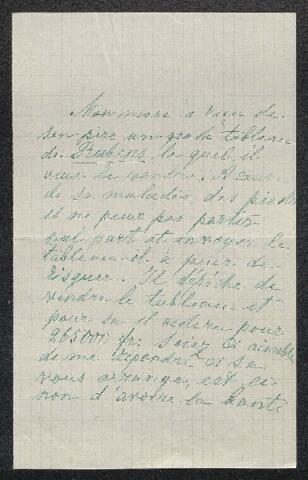 Mon mari a reçu de
son père un grand tableau
de Rubens, lequel il
veut de vendre. A cause
de sa maladie des pieds
il ne peut pas partir
quel part et envoyer le
tableau il a peur de
risquer. Il dépêche de
vendre le tableau et
pour sa il cedera pour
265000 fr: Soiez si aimable
de me repondre si sa
vous arrange, est ci
non d'avoire la bonté